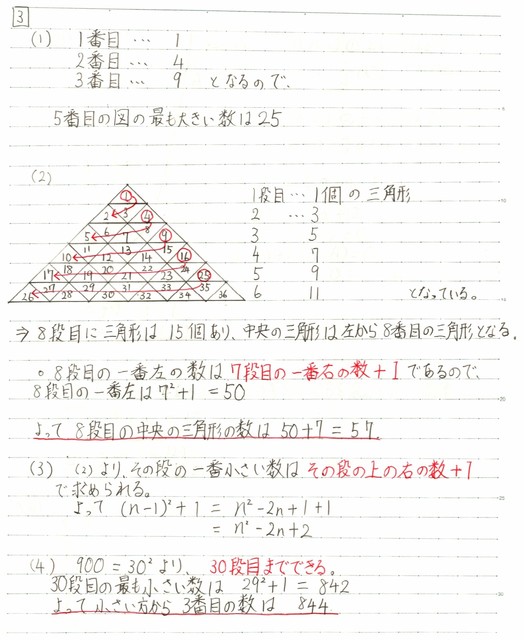 3
(1) 1番目 … 1
2番目 … 4
3番目 … 9 となるので、
5番目の図の最も大きい数は25
(2)
1段目 … 1個の三角形
2 … 3
3 5
4 7
5 9
6 11 となっている。
1
2 3 4
5 6 7 8 9
10 11 12 13 14 15 16
17 18 19 20 21 22 23 24 25
26 27 28 29 30 31 32 33 34 35 36
⇒ 8段目に三角形は15個あり、中央の三角形は左から8番目の三角形となる。
○ 8段目の一番左の数は7段目の一番右の数+1であるので、
8段目の一番左は7²+1=50
よって8段目の中央の三角形の数は50+7=57
(3) (2)より、その段の一番小さい数はその段の上の右の数+1
で求められる。
よって (n-1)²+1 = n²-2n+1+1
= n²-2n+2
(4) 900=30²より、30段目までできる。
30段目の最も小さい数は 29²+1=842
よって小さい方から3番目の数は 844